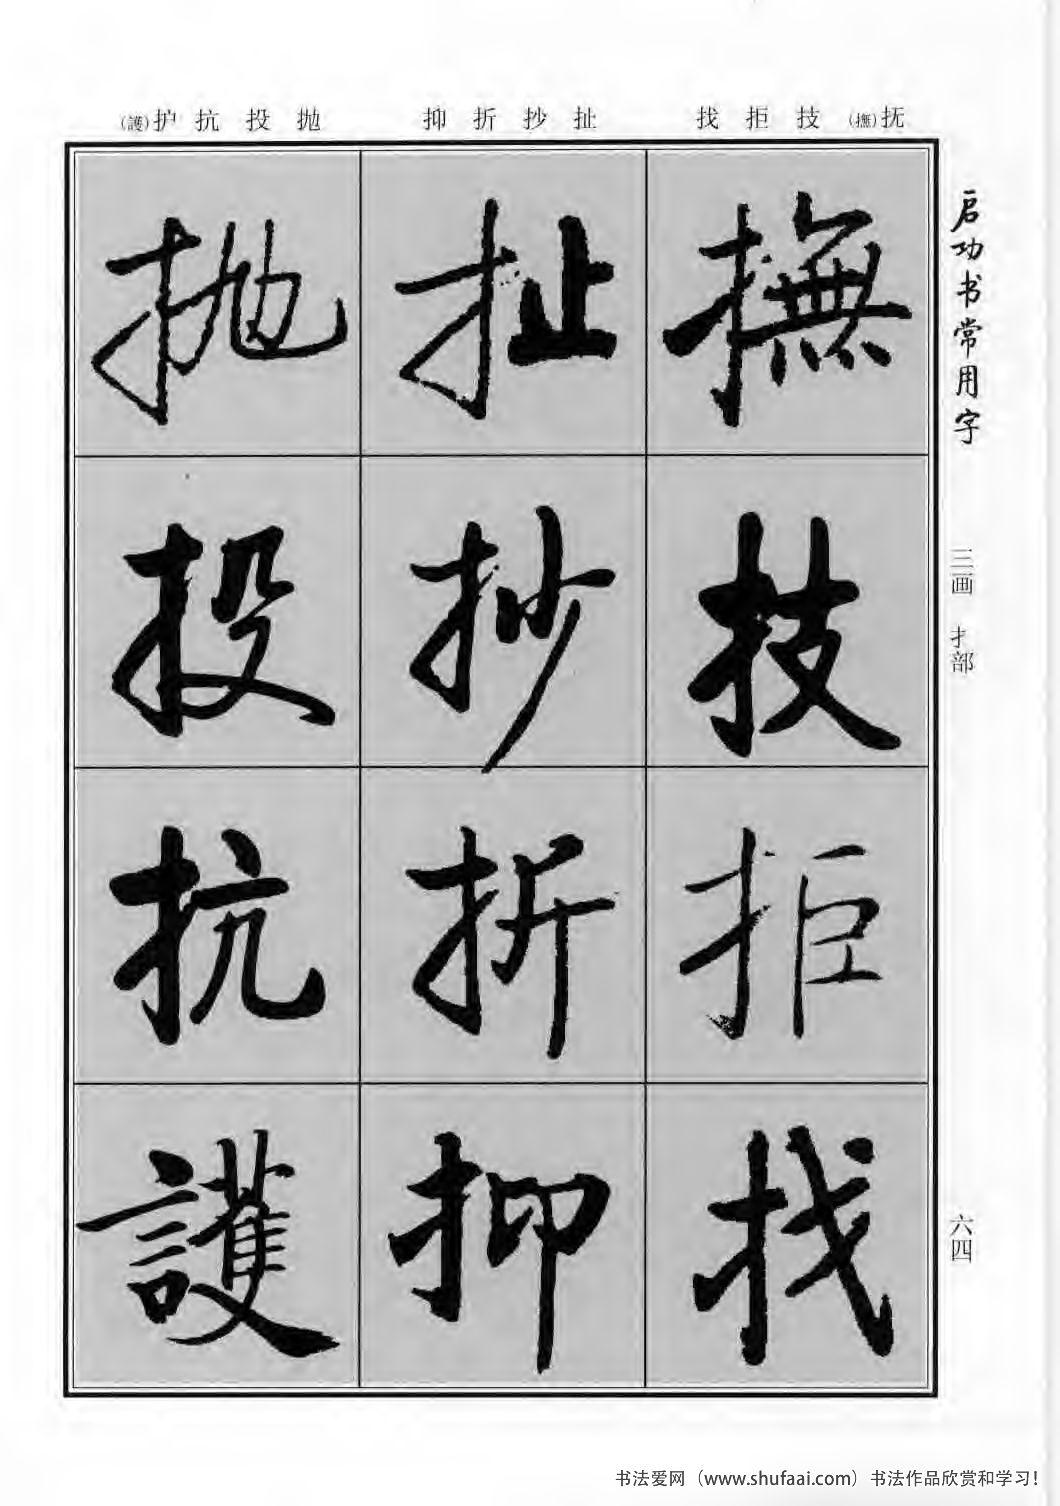 (護)护抗投抛 抑折抄扯 找拒技(撫)抚
启功书常用字
三画 扌部
六四
撫
技
拒
找
扯
抄
折
抑
抛
投
抗
護
书法爱网（www.shufaai.com）书法作品欣赏和学习!